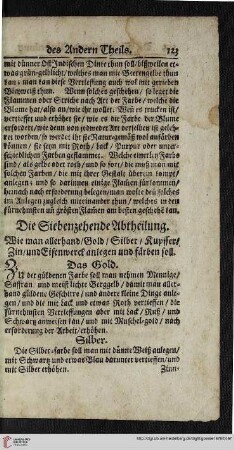 des Andern Theils. 123
mit dünner Ost-Indischen Dinte thun soll/ bißweilen et-
was grün-gelblicht/ welches man mit Beerengelbe thun
kan: man kan diese Vertieffung auch wol mit geriben
Bleyweiß thun. Wenn solches geschehen/ so leget die
Flammen oder Striche nach Art der Farbe/ welche die
Blume hat/ also an/ wie ihr wollet. Wen es trucken ist/
vertieffet und erhöhet sie/ wie es die Farbe der Blume
erfordert/
seyn mit Roth/ Lack/ Purpur oder unter-
schiedlichen Farben geflammet. Welche einerley Farbe
sind/ als gelbe oder roth/ und so fort/ die muß man mit
solchen Farben/ die mit ihrer Gestalt überein kommt/
anlegen; und so darinnen einige Flamen fürkommen/
benach nach erforderung belegen/ man wolte den solches
im Anlegen zugleich miteinander thun/ welches in den
fürnehmsten und grösten Flamen am besten geschehen kan.
Die Siebenzehende Abtheilung.
Wie man allerhand/ Gold/ Silber/ Kupffer/
Zin/ und Eisenwerck anlegen und färben soll.
Das Gold.
Zu der güldenen Farbe soll man nehmen Mennige/
Saffran und meist lichte Berggelb/ damit man aller-
hand güldene Geschirre/ und andere kleine Dinge anle-
gen/ und die mit Lack und etwas Roth vertieffen/ die
fürnehmsten Vertieffungen aber mit Lack/ Ruß/ und
Schwartz anweisen kan/ und mit Muschel-gold/ nach
erforderung der Arbeit/ erhöhen.
Silber.
Die Silber-farbe soll man mit dünne Weiß anlegen/
mit Schwartz und etwas Blau darunter vertieffen/ und
mit Silber erhöhen. Zinn-